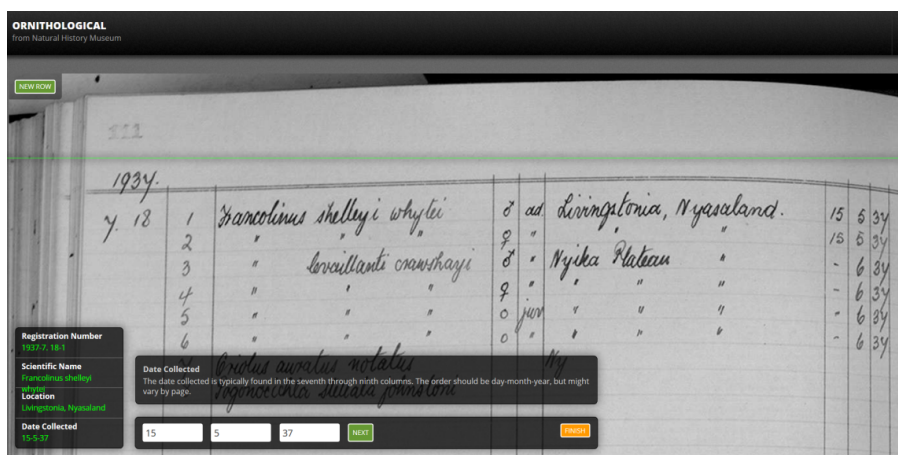 ORNITHOLOGICAL
from Natural History Museum
NEW ROW
111
1937.
7. 18 1 Francolinus shelleyi whytei ♂ ad. Livingstonia, Nyasaland. 15 5 37
2 " " " ♀ " " " 15 5 37
3 " levaillanti crawshayi ♂ " Nyika Plateau " - 6 37
4 " " " ♀ " " " " - 6 37
5 " " " o juv " " " - 6 37
6 " " " o " " " " - 6 37
Oriolus auratus notatus Ny
johnstoni
Registration Number
1937-7. 18-1
Scientific Name
Francolinus shelleyi
whytei
Location
Livingstonia, Nyasaland
Date Collected
15-5-37
Date Collected
The date collected is typically found in the seventh through ninth columns. The order should be day-month-year, but might
vary by page.
15 5 37 NEXT FINISH